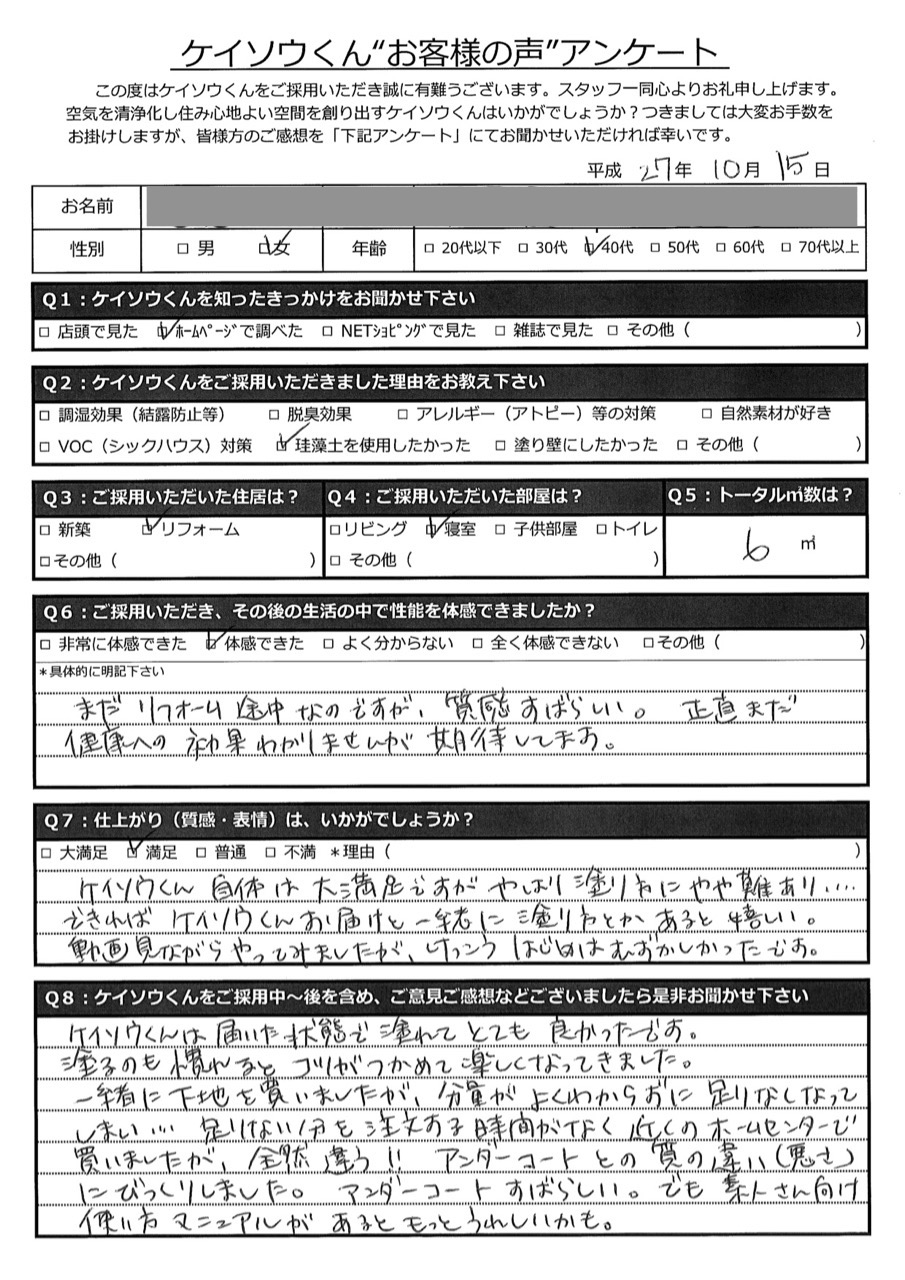 ケイソウくん“お客様の声”アンケート
この度はケイソウくんをご採用いただき誠に有難うございます。スタッフ一同心よりお礼申し上げます。
空気を清浄化し住み心地よい空間を創り出すケイソウくんはいかがでしょうか？つきましては大変お手数を
お掛けしますが、皆様方のご感想を「下記アンケート」にてお聞かせいただければ幸いです。
平成 27年 10月 15日
お名前
性別 □ 男 □女 年齢 □ 20代以下 □ 30代 □ 40代 □ 50代 □ 60代 □ 70代以上
Q1：ケイソウくんを知ったきっかけをお聞かせ下さい
□ 店頭で見た □ ﾎｰﾑﾍﾟｰｼﾞで調べた □ NETｼｮﾋﾟﾝｸﾞで見た □ 雑誌で見た □ その他（ ）
Q2：ケイソウくんをご採用いただきました理由をお教え下さい
□ 調湿効果（結露防止等） □ 脱臭効果 □ アレルギー（アトピー）等の対策 □ 自然素材が好き
□ VOC（シックハウス）対策 □ 珪藻土を使用したかった □ 塗り壁にしたかった □ その他（ ）
Q3：ご採用いただいた住居は？ Q4：ご採用いただいた部屋は？ Q5：トータル㎡数は？
□ 新築 □ リフォーム □リビング □ 寝室 □ 子供部屋 □トイレ 6 ㎡
□その他（ ） □ その他（ ）
Q6：ご採用いただき、その後の生活の中で性能を体感できましたか？
□ 非常に体感できた □ 体感できた □ よく分からない □ 全く体感できない □その他（ ）
＊具体的に明記下さい
まだ リフォーム 途中なのですが、質感すばらしい。 正直まだ
健康への 効果わかりませんが 期待してます。
Q7：仕上がり（質感・表情）は、いかがでしょうか？
□ 大満足 □ 満足 □ 普通 □ 不満 ＊理由（ ）
ケイソウくん 自体は 大満足ですが やはり 塗り方にやや難あり‥‥
できれば ケイソウくんお届けと 一緒に 塗り方とか あると 嬉しい。
動画見ながら やってみましたが、けっこう はじめはむずかしかったです。
Q8：ケイソウくんをご採用中～後を含め、ご意見ご感想などございましたら是非お聞かせ下さい
ケイソウくんは 届いた 状態で 塗れて とても 良かったです。
塗るのも 慣れると コツがつかめて 楽しくなってきました。
一緒に 下地を 買いましたが、分量が よくわからずに 足りなくなって
しまい… 足りない分を 注文する 時間がなく 近くの ホームセンターで
買いましたが、全然 違う!! アンダーコートとの 質の違い（悪さ）
にびっくりしました。 アンダーコート すばらしい。でも 素人さん向け
使い方 マニュアルが あると もっと うれしいかも。